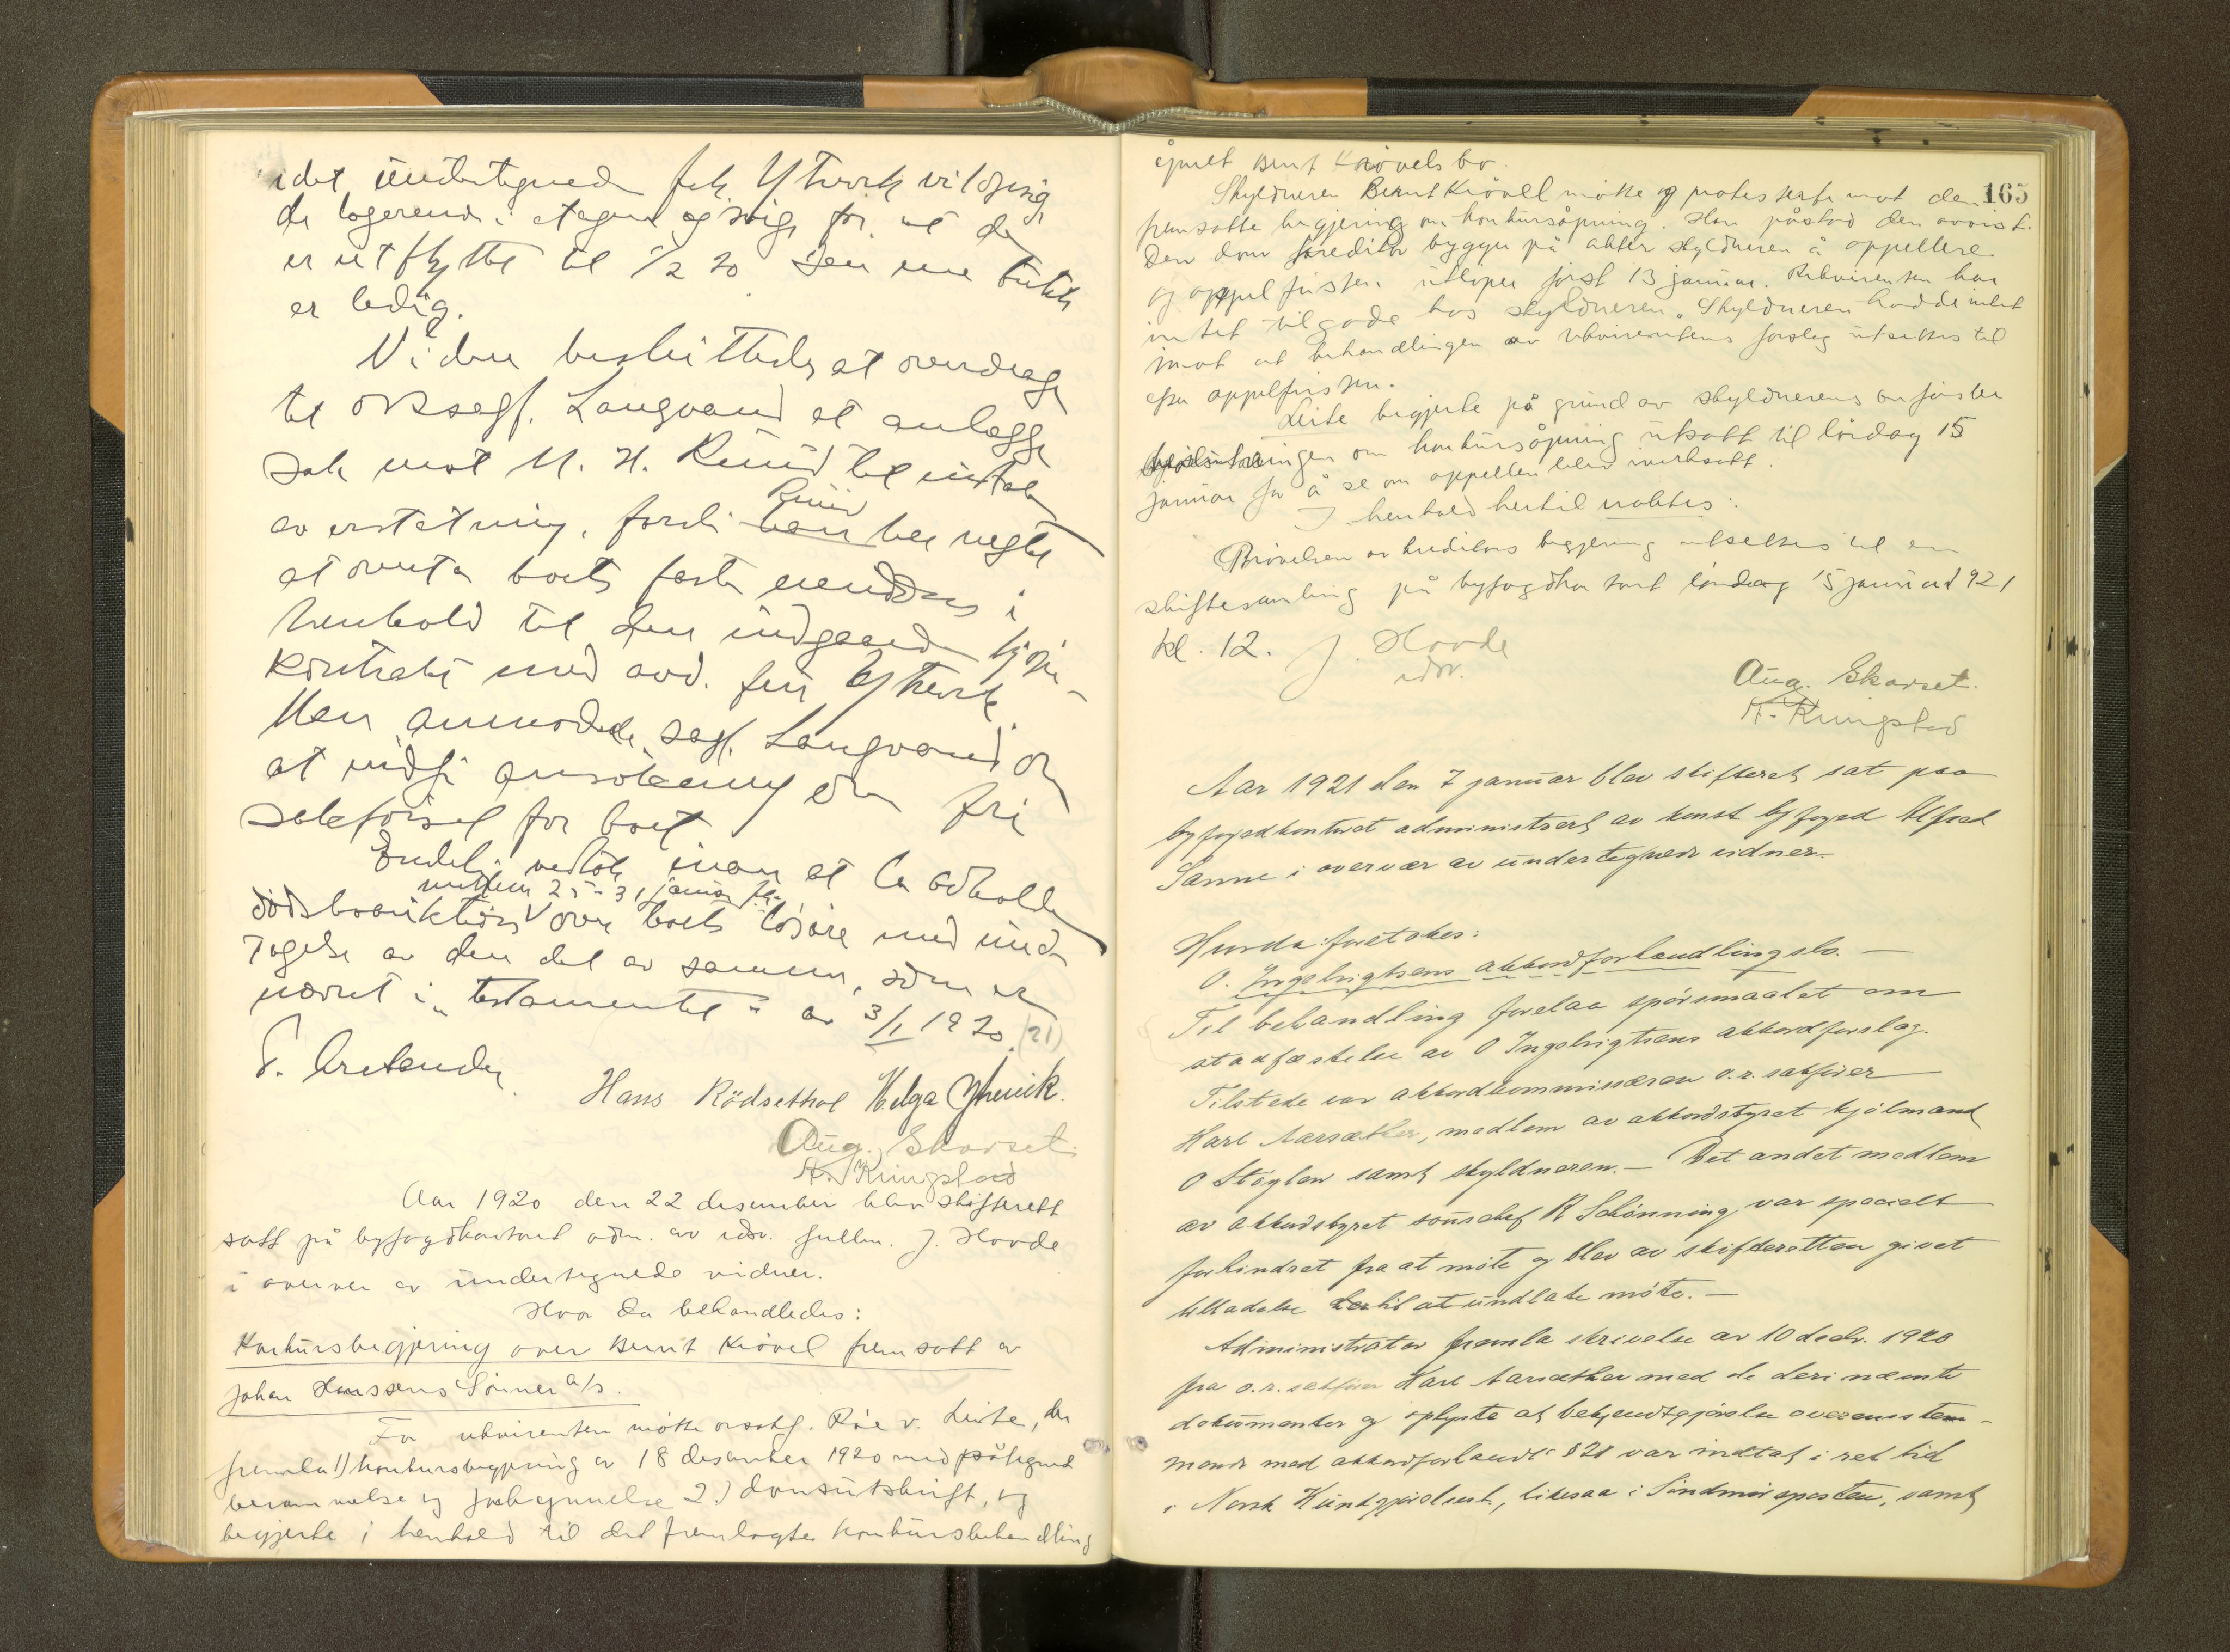 idet undertegnede frk. Ytrevik vil opsige
de logerende i etagen og sørge for at de
er utflyttet til 1/2 20 Den ene butik
er ledig.
Videre besluttedes at overdrage
til orsagf. Langvand at anlægge
sak mot M. H. Ruud til inntale
av erstatning, fordi han Ruud har negtet
at overta boets faste eiendom i
henhold til den indgaaede kjøpe-
kontrakt med avd. fru Ytrevik.
Man anmodede sagf. Langvand om
at indgi ansøkning om fri
sakførsel for boet.
Endelig vedtok man at la avholde
mellem 25 - 31 januar
dødsboauktion over boets løsøre med und-
tagelse av den del av samme, som er
nævnt i "testamentet" av 3/1 1920. (21)
Hans Rödsethol Helga Ytrevik.
Aug. Skarset.
K. Ringstad
Aar 1920 den 22 desember blev skifterett
satt på byfogdkontoret adm. av edsv. fullm. J. Hovde
i overvær av undertegnede vidner.
Hvor da behandledes:
Konkursbegjæring over Bernt Krövel fremsatt av
Johan Hanssens Sønner a/s.
For rekvirenten møtte orsakf. Röe v. Leite, der
fremla 1) konkursbegjæring av 18 desember 1920 med påtegnet
berammelse og forkynnelse 2.) domsutskrift, og
begjærte i henhold til det fremlagte konkursbehandling
åpnet i Bernt Krövels bo.
165
Skyldneren Bernt Krövell møtte og protesterte mot den
fremsatte begjæring om konkursåpning. Han påstod den avvist.
Den dom kreditor bygger på akter skyldneren å appellere
og appelfristen utløper først 13 januar. Rekvirenten har
intet tilgode hos skyldneren. Skyldneren hadde intet
imot at behandlingen av rekvirentens forslag utsettes til
efter appelfristen.
Leite begjærte på grund av skyldnerens anførsler
beslutningen om konkursåpning utsatt til lördag 15
januar for å se om appellen blev iverksatt.
I henhold hertil vaktes:
Prövelsen av kreditors begjæring utsettes til en
skiftesamling på byfogdkontoret lördag 15 januar 1921
kl. 12.
J. Hovde
edsv.
Aug. Skarset.
K. Ringstad
Aar 1921 den 7 januar blev skifteret sat paa
byfogedkontoret administrert av konst byfoged Alfred
Sanne i overvær av undertegnede vidner.
Hvorda foretokes:
O. Ingebrigtsens akkordforhandlingsbo. —
Til behandling forelaa spörsmaalet om
stadfæstelse av O Ingebrigtsens akkordforslag.
Tilstede var akkordkommissæren o.r. sakförer
Karl Aarsæther, medlem av akkordstyret kjölmand
O Stöylen samt skyldneren. — Det andet medlem
av akkordstyret souschef R Schönning var specielt
forhindret fra at möte og blev av skifteretten givet
tilladelse dertil at undlate möte. —
Administrator fremla skrivelse av 10 decbr. 1920
fra o.r. sakförer Karl Aarsæther med de deri nævnte
dokumenter og oplyste at bekjendtgjörelse overensstem-
mende med akkordforhandl. § 21 var indtat i ret tid
i Norsk Kundgjörelsest., likesaa i Söndmörsposten, samt